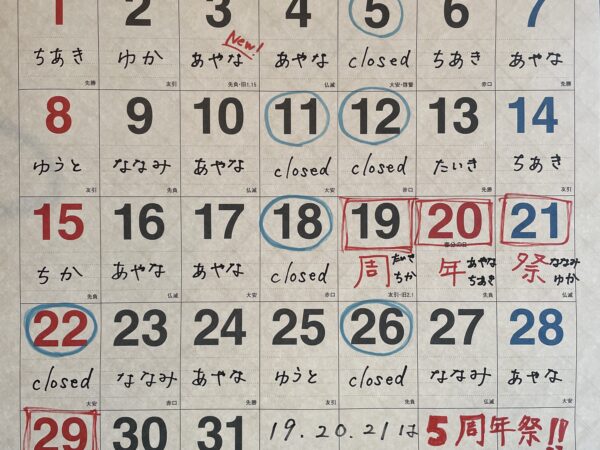 1 2 3 4 5 6 7
New!
ちあき ゆか あやな あやな closed ちあき あやな
先勝 友引 先負・旧1.15 仏滅 大安・啓蟄 赤口 先勝
8 9 10 11 12 13 14
ゆうと ななみ あやな closed closed たいき ちあき
友引 先負 仏滅 大安 赤口 先勝 友引
15 16 17 18 19 20 21
春分の日
ちか あやな あやな closed 周 たいき ちか 年 あやな ちあき 祭 ななみ ゆか
先負 仏滅 大安 赤口 友引・旧2.1 先負 仏滅
22 23 24 25 26 27 28
closed ななみ あやな ゆうと closed ななみ あやな
大安 赤口 先勝 友引 先負 仏滅 大安
29 30 31 19.20.21は 5周年祭!!